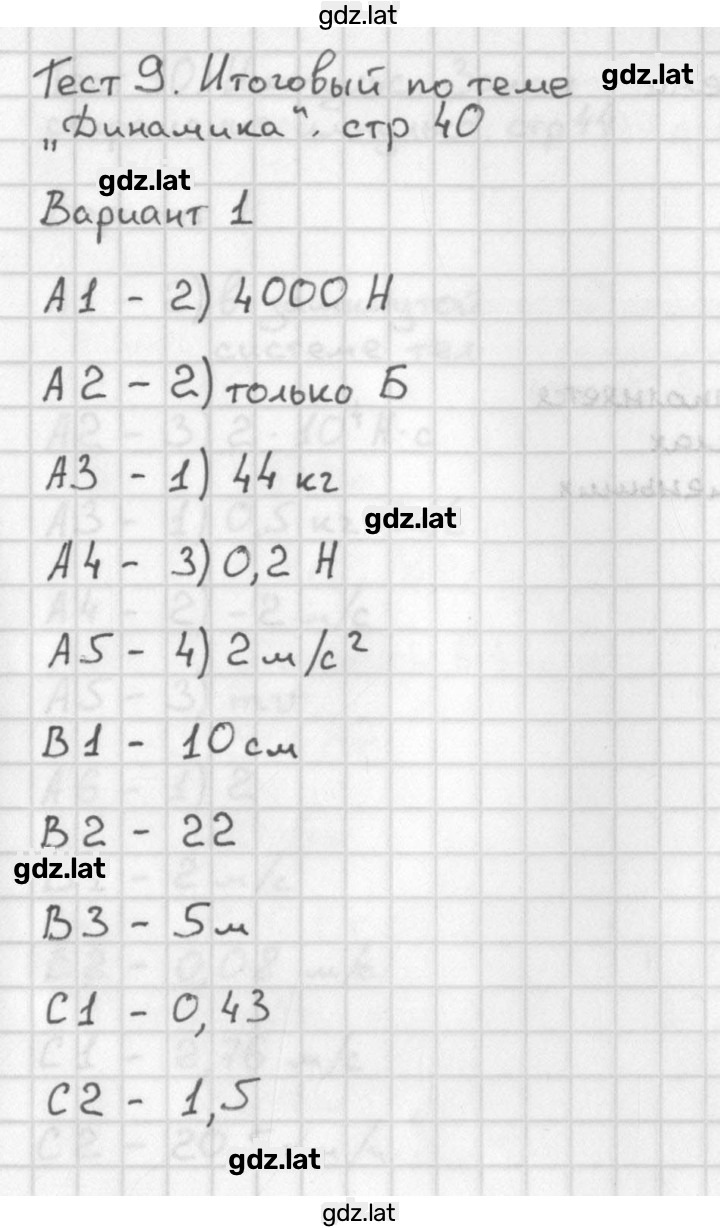 gdz.lat
Тест 9. Итоговый по теме gdz.lat
„Динамика". стр 40
gdz.lat
Вариант 1
А1 - 2) 4000 Н
А2 - 2) только Б
А3 - 1) 44 кг
gdz.lat
А4 - 3) 0,2 Н
А5 - 4) 2 м/с²
В1 - 10 см
В2 - 22
gdz.lat
В3 - 5 м
С1 - 0,43
С2 - 1,5
gdz.lat
gdz.lat